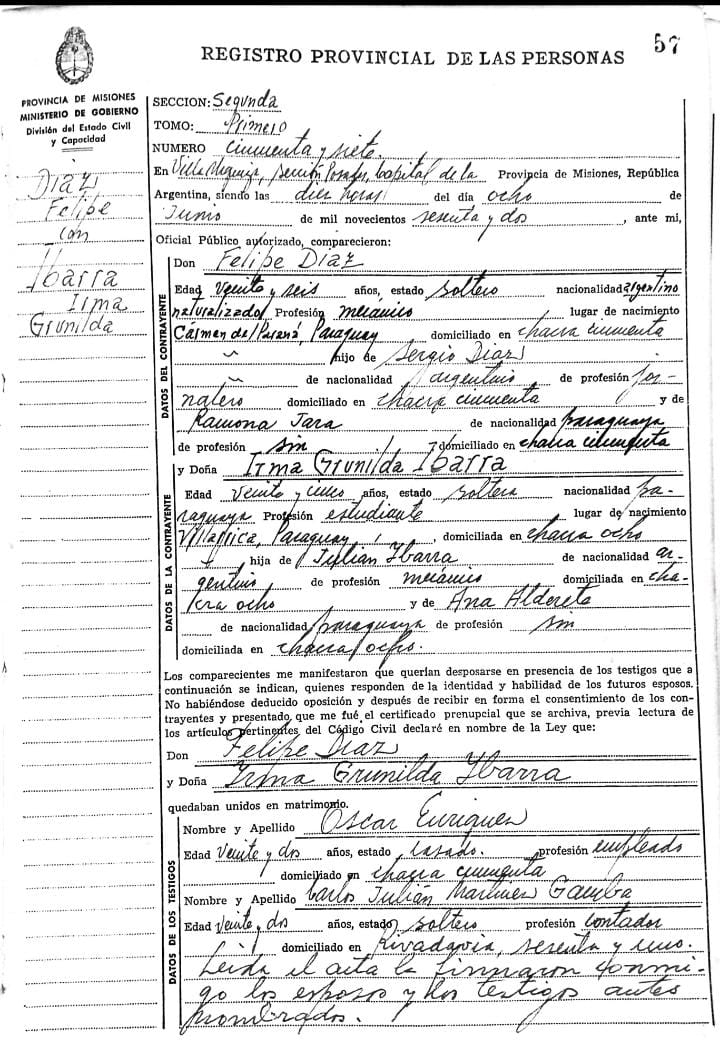 57
REGISTRO PROVINCIAL DE LAS PERSONAS
PROVINCIA DE MISIONES
MINISTERIO DE GOBIERNO
División del Estado Civil
y Capacidad
Díaz
Felipe
con
Ibarra
Irma
Grunilda
SECCION: Segunda
TOMO: Primero
NUMERO cincuenta y siete.
En Villa Urquiza, sección Posadas, Capital de la Provincia de Misiones, República
Argentina, siendo las diez horas del día ocho de
Junio de mil novecientos sesenta y dos, ante mi,
Oficial Público autorizado, comparecieron:
DATOS DEL CONTRAYENTE
Don Felipe Díaz
Edad veinte y seis años, estado soltero nacionalidad argentino
naturalizado Profesión mecánico lugar de nacimiento
Cármen del Paraná, Paraguay domiciliado en chacra cincuenta
hijo de Sergio Díaz
de nacionalidad argentino de profesión jor-
nalero domiciliado en chacra cincuenta y de
Ramona Jara de nacionalidad paraguaya
de profesión sin domiciliado en chacra cincuenta
DATOS DE LA CONTRAYENTE
y Doña Irma Grunilda Ibarra
Edad veinte y cinco años, estado soltera nacionalidad pa-
raguaya Profesión estudiante lugar de nacimiento
Villarrica, Paraguay, domiciliada en chacra ocho
hija de Julian Ybarra de nacionalidad ar-
gentino de profesión mecánico domiciliada en cha-
cra ocho y de Ana Aldereta
de nacionalidad paraguaya de profesión sin
domiciliada en chacra ocho.
Los comparecientes me manifestaron que querían desposarse en presencia de los testigos que a
continuación se indican, quienes responden de la identidad y habilidad de los futuros esposos.
No habiéndose deducido oposición y después de recibir en forma el consentimiento de los con-
trayentes y presentado que me fué el certificado prenupcial que se archiva, previa lectura de
los artículos pertinentes del Código Civil declaré en nombre de la Ley que:
Don Felipe Díaz
y Doña Irma Grunilda Ybarra
quedaban unidos en matrimonio.
DATOS DE LOS TESTIGOS
Nombre y Apellido Oscar Enriquez
Edad veinte y dos años, estado casado. profesión empleado
domiciliado en chacra cincuenta
Nombre y Apellido Carlos Julián Martinez Gamba
Edad veinte y dos años, estado soltero profesión contador
domiciliado en Rivadavia, sesenta y uno.
Leída el acta la firmaron conmi-
go los esposos y los testigos antes
nombrados.